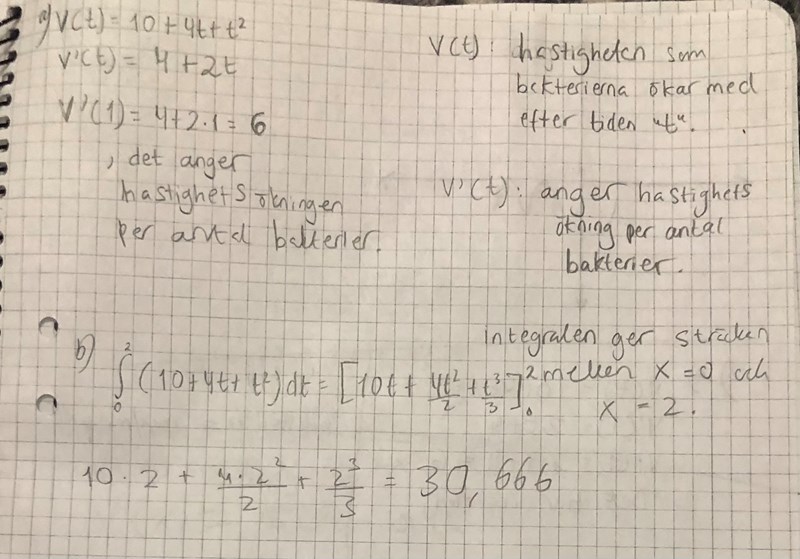 a) V(t) = 10 + 4t + t²
V'(t) = 4 + 2t
V'(1) = 4+2·1 = 6
, det anger
hastighetsökningen
per antal bakterier.
V(t): hastigheten som
bakterierna ökar med
efter tiden "t".
V'(t): anger hastighets
ökning per antal
bakterier.
b) ∫₀² (10+4t+t²)dt = [10t + 4t²/2 + t³/3]₀²
integralen ger sträckan
mellan x = 0 och
x = 2.
10·2 + 4·2²/2 + 2³/3 = 30,666